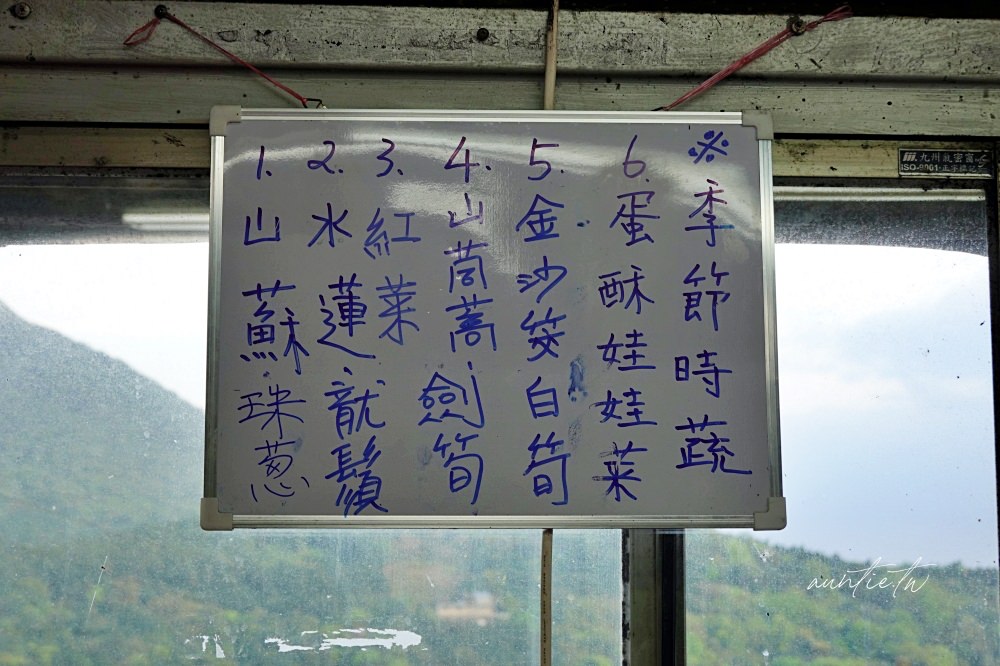 ※季節時蔬
1.山蘇.珠葱
2.水蓮.龍鬚
3.紅菜
4.山茼蒿.劍筍
5.金沙筊白筍
6.蛋酥娃娃菜
九州氣密窗
ISO-9001
auntie.tw